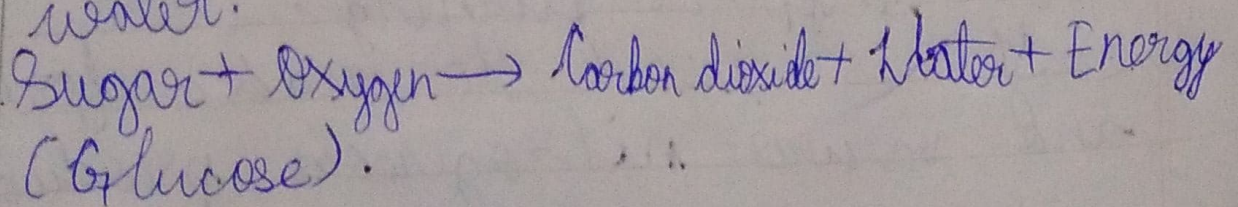 water.
Sugar + Oxygen → Carbon dioxide + Water + Energy
(Glucose).